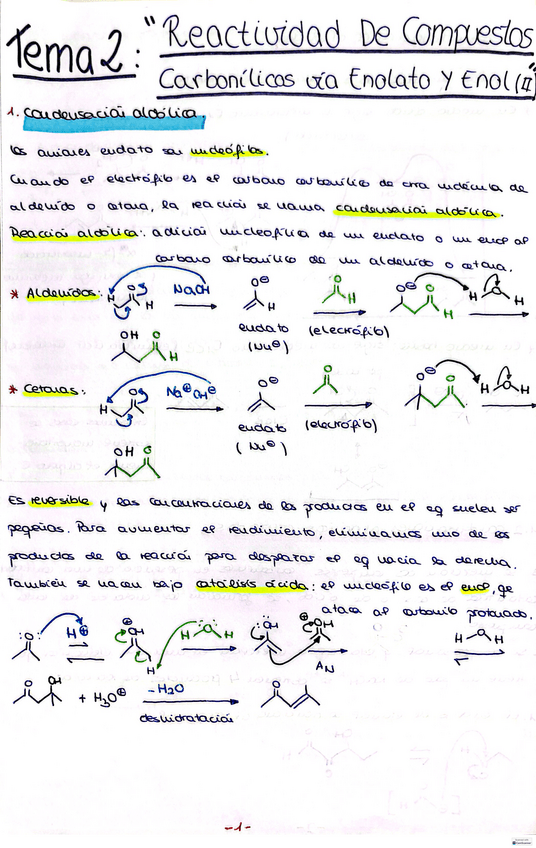 Tema 2: "Reactividad De Compuestos
Carbonílicos vía Enolato Y Enol (II)"
1. Condensación aldólica.
Los aniones enolato son nucleófilos.
Cuando el electrófilo es el carbono carbonílico de otra molécula de
aldehído o cetona, la reacción se llama condensación aldólica.
Reacción aldólica: adición nucleofílica de un enolato o un enol al
carbono carbonílico de un aldehído o cetona.
* Aldehídos: H O H NaOH O⊖ O H O⊖ O H H O H
enolato (electrófilo)
(Nu⊖)
OH O H
* Cetonas: H O Na⊕OH⊖ O⊖ O O⊖ O H O H
enolato (electrófilo)
(Nu⊖)
OH O
Es reversible y las concentraciones de los productos en el eq suelen ser
pequeñas. Para aumentar el rendimiento, eliminamos uno de los
productos de la reacción para desplazar el eq hacia la derecha.
También se hacen bajo catálisis ácida: el nucleófilo es el enol, qe
ataca al carbonilo protonado.
:O: H⊕ ⊕OH H H O H :OH ⊕OH AN H O H
O OH + H3O⊕ -H2O O
deshidratación
-1-